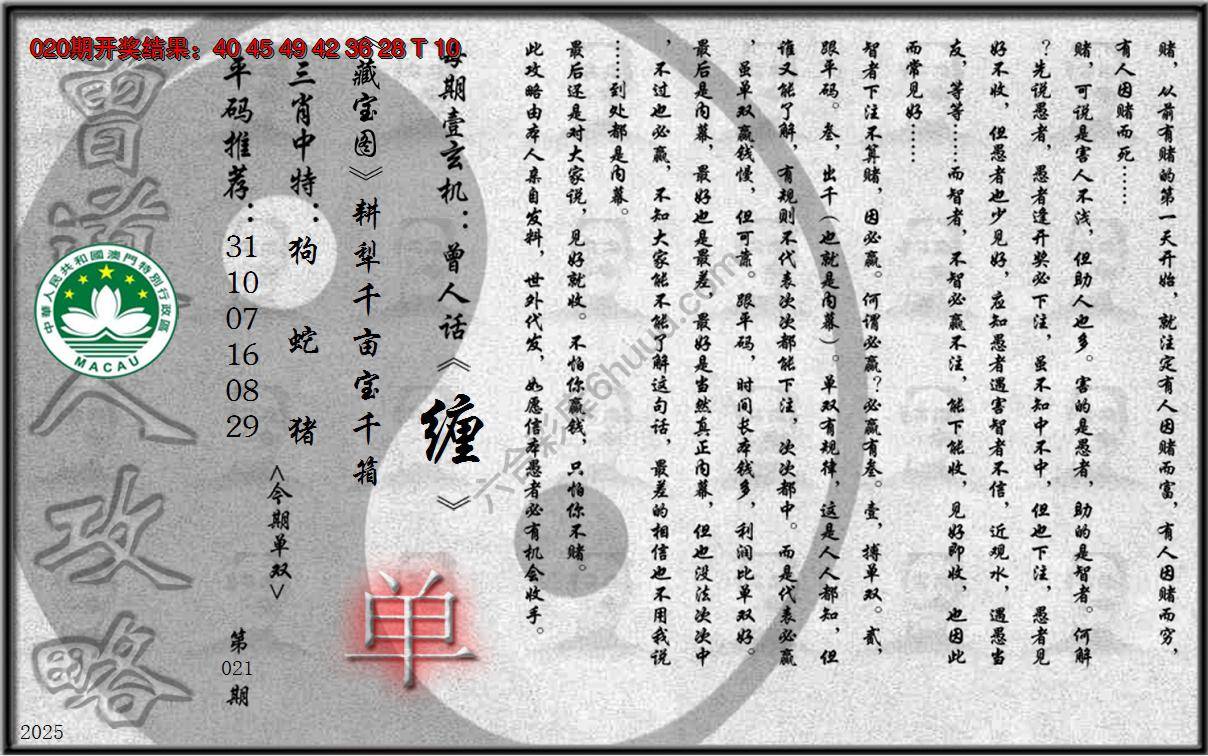 020期开奖结果：40 45 49 42 36 28 T 10
赌，从前有赌的第一天开始，就注定有人因赌而富，有人因赌而穷，
有人因赌而死……
赌，可说是害人不浅，但助人也多。害的是愚者，助的是智者。何解
？先说愚者，愚者逢开奖必下注，虽不知中不中，但也下注，愚者见
好不收，但愚者也少见好，应知愚者遇害智者不信，近观水，遇愚当
友，等等……而智者，不智必赢不注，能下能收，见好即收，也因此
而常见好……
智者下注不算赌，因必赢。何谓必赢？必赢有叁。壹，搏单双。贰，
跟平码。叁，出千（也就是内幕）。单双有规律，这是人人都知，但
谁又能了解，有规则不代表次次都能下注，次次都中。而是代表必赢
，虽单双赢钱慢，但可靠。跟平码，时间长本钱多，利润比单双好。
最后是内幕，最好也是最差，最好是当然真正内幕，但也没法次次中
，不过也必赢，不知大家能不能了解这句话，最差的相信也不用我说
……到处都是内幕。
最后还是对大家说，见好就收。不怕你赢钱，只怕你不赌。
此攻略由本人亲自发料，世外代发，如愿信本愚者必有机会收手。
每期壹玄机：曾人话《缠》
《藏宝图》耕犁千亩宝千箱
单
三肖中特：狗 蛇 猪
<今期单双>
平码推荐：31 10 07 16 08 29
第021期
曾道人攻略
中華人民共和國澳門特別行政區
MACAU
六合彩库6huuu.com
2025